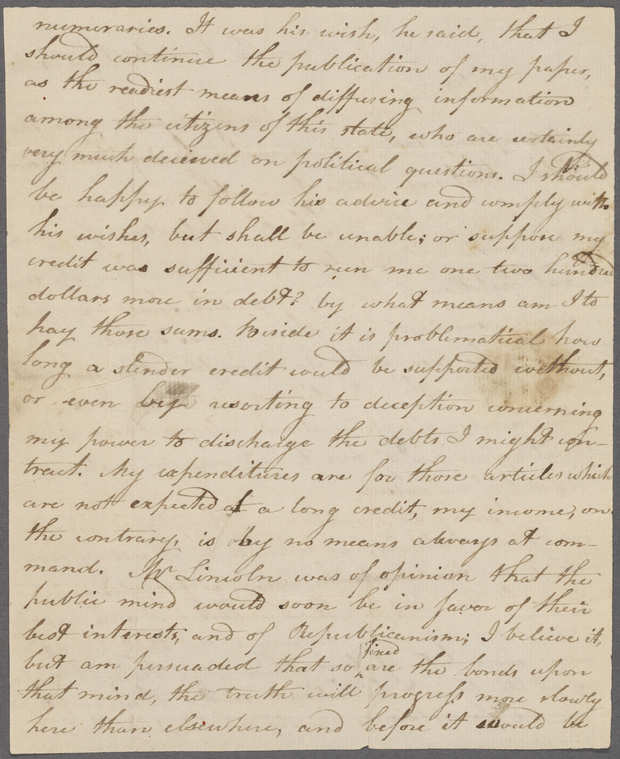 numeraries. It was his wish, he said, that I
should continue the publication of my paper,
as the readiest means of diffusing information
among the citizens of this state, who are certainly
very much decieved on political questions. I should
be happy to follow his advice and comply with
his wishes, but shall be unable; or suppose my
credit was sufficient to run me one two hundred
dollars more in debt? by what means am I to
pay those sums. Beside it is problematical how
long a slender credit would be supported without,
or even by resorting to deception concerning
my power to discharge the debts I might con-
tract. My expenditures are for those articles which
are not expected at a long credit, my income, on
the contrary, is by no means always at com-
mand. Mr Lincoln was of opinion that the
public mind would soon be in favor of their
best interests, and of Republicanism; I believe it,
but am persuaded that so fixed are the bonds upon
that mind, the truth will progress more slowly
here than elsewhere, and before it would be